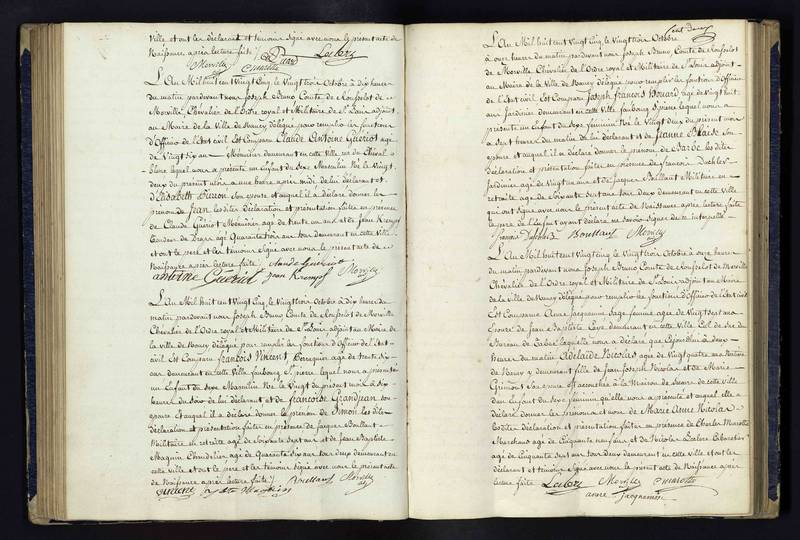 ville et ont les déclarant et témoins signé avec nous le présent acte de
Naissance après lecture faite
Morvilly Cuiarotte Duat Leclerc
L'An Mil huit cent Vingt Cinq, le Vingt trois Octobre à dix heures
du matin pardevant nous Joseph Bruno Comte de
Morville, Chevalier de l'Ordre royal et Militaire de St Louis, adjoint
au Maire de la Ville de Nancy délégué pour remplir les fonctions
d'Officier de l'Etat civil Est Comparu Claude Antoine Guériot agé
de Vingt six ans Menuisier demeurant en cette Ville, rue du Cheval
blanc lequel nous a présenté un Enfant du Sexe Masculin Né le Vingt
deux du présent mois à une heure après midi de lui déclarant et
d'Elisabeth Pierron Son épouse et auquel il a déclaré donner le
prenom de Jean les dites déclaration et présentation faites en présence
de Claude Guériot Menuisier agé de trente un ans et de Jean Krempf
agé Quarante trois ans tous demeurant en cette Ville
et ont le pere et les témoins signé avec nous le présent acte de
Naissance après lecture faite Claude Guériot
antoine Guériot Jean Krempf Morvilly
L'An Mil huit cent Vingt Cinq, le Vingt trois Octobre à dix heures du
matin pardevant nous Joseph Bruno Comte de Morville
Chevalier de l'Ordre royal et Militaire de St Louis adjoint au Maire de
la Ville de Nancy délégué pour remplir les fonctions d'Officier de l'Etat
civil Est Comparu françois Vincent, agé de trente six
ans demeurant en cette Ville faubourg St pierre lequel nous a présenté
un Enfant du Sexe Masculin Né le Vingt du present mois à Six
heures du Soir de lui déclarant et de françoise Grandjean son
epouse et auquel il a déclaré donner le prenom de Simon les dites
déclaration et présentation faites en présence de Jacques Boullant
Militaire en retraite agé de Soixante Sept ans et de Jean Baptiste
Maquin Chandelier agé de Quarante Six ans tous deux demeurant en
cette Ville et ont le pere et les témoins signé avec nous le present acte
de Naissance après lecture faite
vincent Boullant Morvilly
L'An Mil huit cent Vingt Cinq, le Vingt trois Octobre
à onze heures du matin pardevant nous Joseph Bruno, Comte de
de Morville Chevalier de l'Ordre royal et Militaire de St Louis adjoint
au Maire de la Ville de Nancy délégué pour remplir les fonctions d'Officier
de l'Etat civil Est Comparu Joseph François Bouard agé de Vingt huit
ans Jardinier demeurant en cette Ville faubourg St pierre lequel nous a
présenté un Enfant du Sexe féminin Né le Vingt deux du présent mois
à Sept heures du matin de lui déclarant et de Jeanne Blaise Son
epouse et auquel il a déclaré donner le prénom de Barbe les dites
déclaration et présentation faites en présence de François
Jardinier agé de Vingt un ans et de Jacques Boullant Militaire en
retraite agé de Soixante Sept ans tous deux demeurant en cette Ville
qui ont signé avec nous le présent acte de Naissance après lecture faite
le pere de l'Enfant ayant déclaré ne Savoir Signer de ce interpellé
Boullant Morvilly
L'An Mil huit cent Vingt Cinq, le Vingt trois Octobre à onze heures
du matin pardevant nous Joseph Bruno Comte de Morville
Chevalier de l'Ordre royal et Militaire de St Louis adjoint au Maire
de la Ville de Nancy délégué pour remplir les fonctions d'Officier de l'Etat civil
Est Comparue Anne Jacquemin Sage femme agée de Vingt Sept ans
épouse de Jean Baptiste demeurant en cette Ville
Bureau de laquelle nous a déclaré que Cejourd'hui à deux
heures du matin Adelaïde Nicolas agée de Vingt quatre ans Native
de Nancy y demeurant fille de Jean Joseph Nicolas et de Marie
Grimont Son epouse est accouchée à la Maison de Secours de cette Ville
d'un Enfant du Sexe féminin qu'elle nous a présenté et auquel elle a
déclaré donner les prenoms et nom de Marie Anne Nicolas
les dites déclaration et présentation faites en présence de Charles
agé de Cinquante neuf ans et de Nicolas Leclerc
agé de Cinquante Sept ans tous deux demeurant en cette Ville et ont les
déclarant et témoins signé avec nous le present acte de Naissance après
lecture faite Leclerc Morvilly Cuiarotte
anne Jacquemin